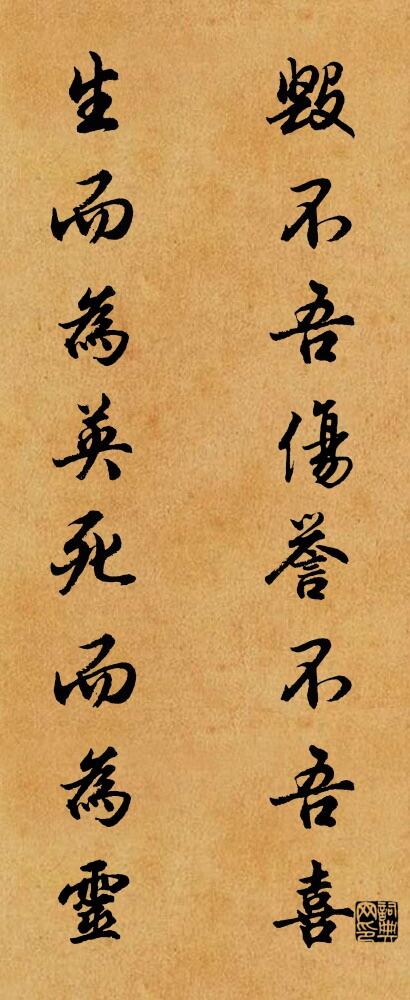 毀不吾傷譽不吾喜
生而為英死而為靈
詞典网印